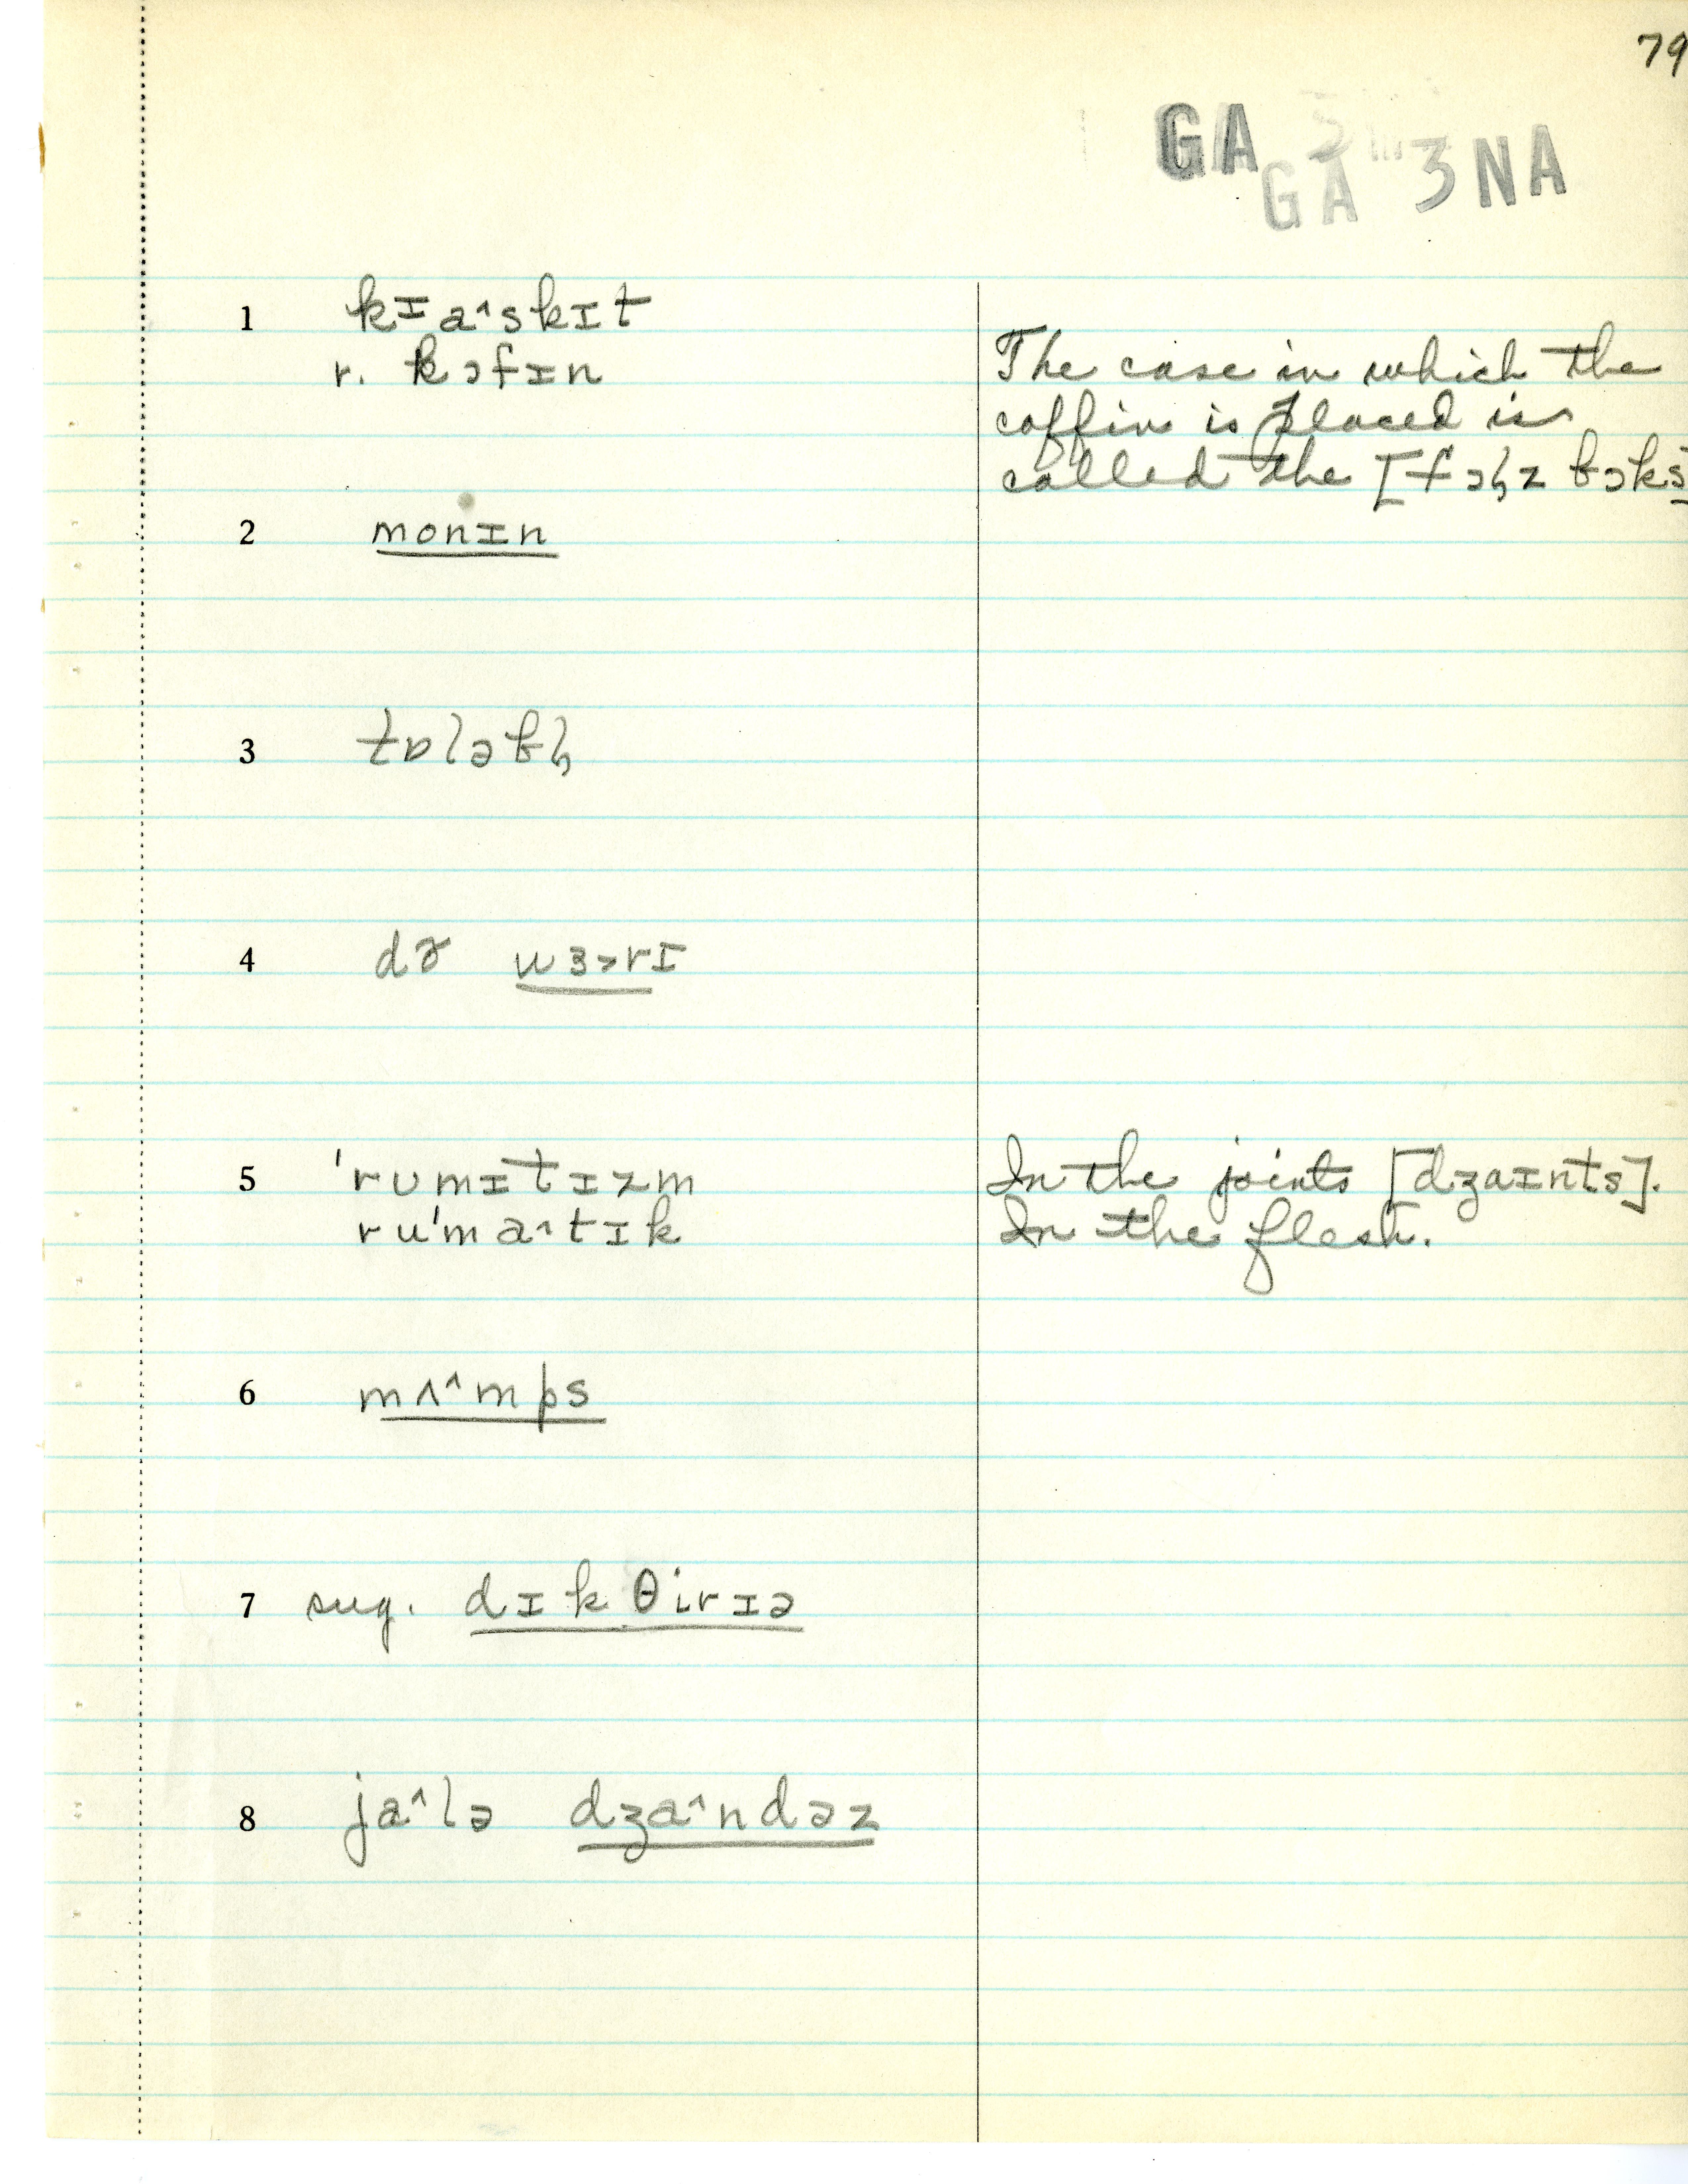 79
GA
GA 3NA
1 kɪa^skɪt
r. kɔfɪn
The case in which the
coffin is placed is
called the
2 monɪn
3
4 dɚ wɜ>rɪ
5 'rumɪtɪzm
In the joints [dʒaɪnts].
ru'ma^tɪk
In the flesh.
6 mʌ^mps
7 sug. dɪkθirɪə
8 ja^lə dʒa^ndəz